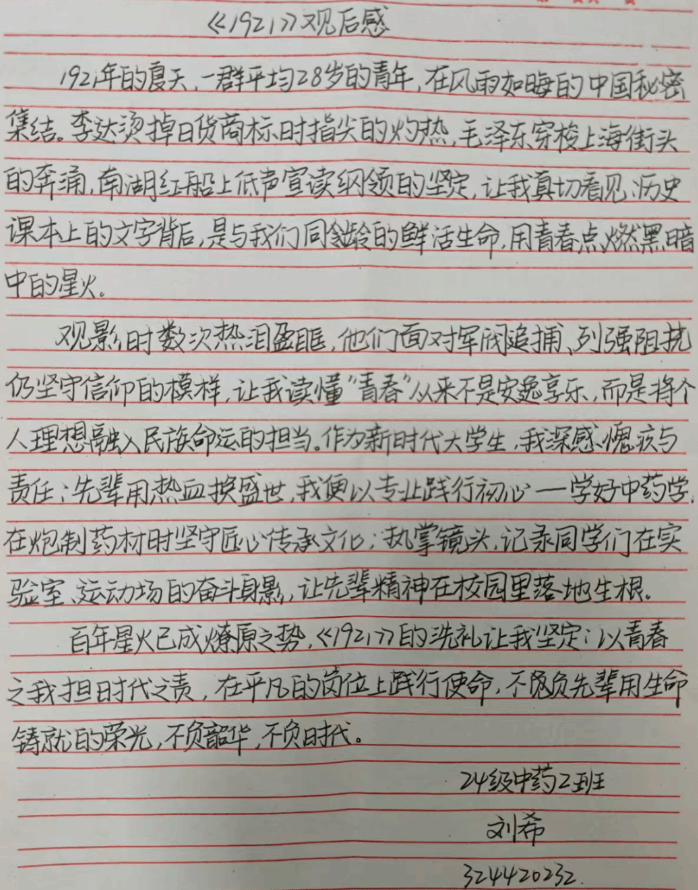 《1921》观后感
1921年的夏天,一群平均28岁的青年,在风雨如晦的中国秘密
集结。李达烫掉日货商标时指尖的灼热,毛泽东穿梭上海街头
的奔涌,南湖红船上低声宣读纲领的坚定,让我真切看见:历史
课本上的文字背后,是与我们同龄的鲜活生命,用青春点燃黑暗
中的星火。
观影时数次热泪盈眶,他们面对军阀追捕、列强阻挠
仍坚守信仰的模样,让我读懂"青春"从来不是安逸享乐,而是将个
人理想融入民族命运的担当。作为新时代大学生,我深感愧疚与
责任:先辈用热血换盛世,我便以专业践行初心——学好中药学,
在炮制药材时坚守匠心传承文化;执掌镜头,记录同学们在实
验室、运动场的奋斗身影,让先辈精神在校园里落地生根。
百年星火已成燎原之势,《1921》的洗礼让我坚定:以青春
之我担时代之责,在平凡的岗位上践行使命,不负先辈用生命
铸就的荣光,不负韶华,不负时代。
24级中药2班
刘希
324420232